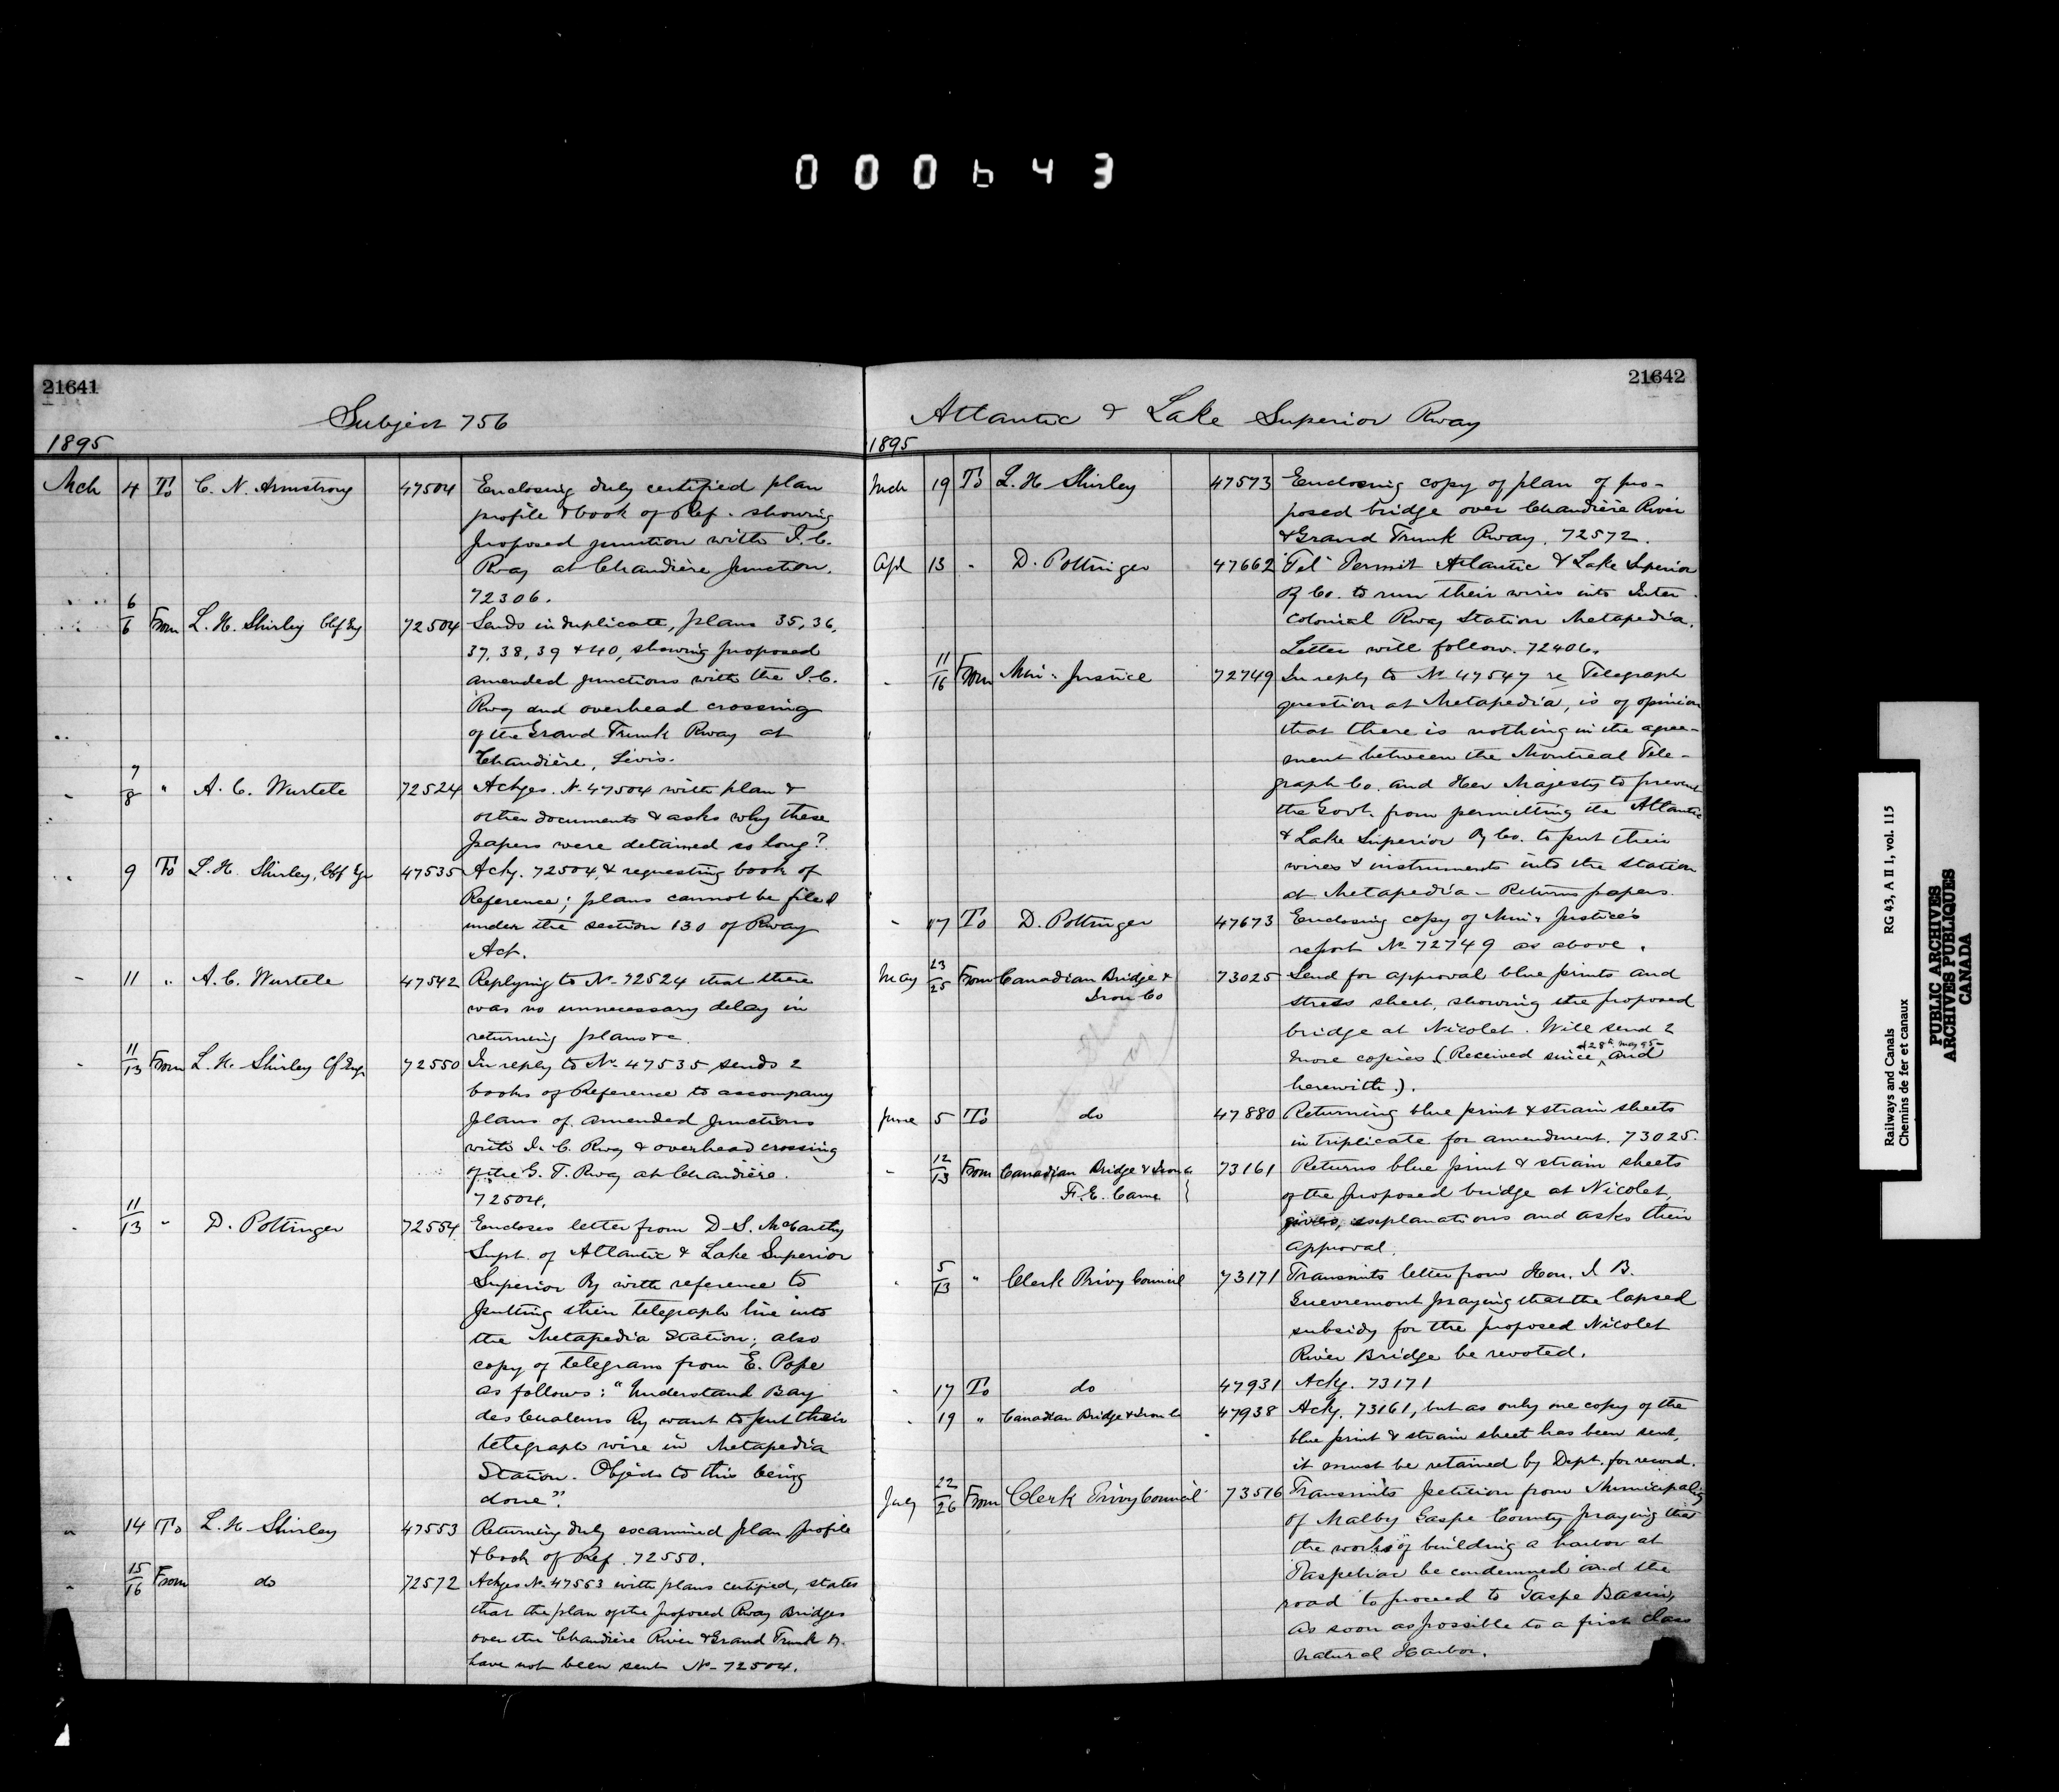 000643
21641
Subject 756
1895
Mch 4 To C. N. Armstrong 47504 Enclosing duly certified plan
profile & book of Ref. showing
proposed junction with I. C.
Rway at Chaudière Junction.
72306.
6/6 From L. H. Shirley Chf Eng 72504 Sends in duplicate, plans 35, 36,
37, 38, 39 & 40, showing proposed
amended junctions with the I. C.
Rway and overhead crossing
of the Grand Trunk Rway at
Chaudière, Levis.
7/8 " A. C. Wurtele 72524 Ackges. No. 47504 with plan &
other documents & asks why these
papers were detained so long?
9 To L. H. Shirley, Chf Egr 47535 Ackg. 72504, & requesting book of
Reference; plans cannot be filed
under the section 130 of Rway
Act.
11 " A. C. Wurtele 47542 Replying to No. 72524 that there
was no unnecessary delay in
returning plans &c.
11/13 From L. H. Shirley Cf Engr 72550 In reply to No. 47535 sends 2
books of Reference to accompany
plans of amended junctions
with I. C. Rway & overhead crossing
of the G. T. Rway at Chaudière.
72504.
11/13 " D. Pottinger 72554 Encloses letter from D. S. McCarthy
Supt. of Atlantic & Lake Superior
Superior Ry with reference to
putting their telegraph line into
the Metapedia Station; also
copy of telegram from E. Pope
as follows: "Understand Bay
des Chaleurs Ry want to put their
telegraph wire in Metapedia
Station. Objects to this being
done".
14 To L. H. Shirley 47553 Returning duly examined plan profile
& book of Ref. 72550.
15/16 From do 72572 Ackges No. 47553 with plans certified, states
that the plan of the proposed Rway Bridges
over the Chaudière River & Grand Trunk R.
have not been sent No. 72504.
21642
Atlantic & Lake Superior Rway
1895
Mch 19 To L. H. Shirley 47573 Enclosing copy of plan of pro-
posed bridge over Chaudière River
& Grand Trunk Rway. 72572.
Apl 13 " D. Pottinger 47662 "Tel" Permit Atlantic & Lake Superior
Ry Co. to run their wires into Inter
colonial Rway Station Metapedia.
Letter will follow. 72406.
11/16 From Min. Justice 72749 In reply to No. 47547 re Telegraph
question at Metapedia, is of opinion
that there is nothing in the agree-
ment between the Montreal Tele-
graph Co. and Her Majesty to prevent
the Govt. from permitting the Atlantic
& Lake Superior Ry Co. to put their
wires & instruments into the station
at Metapedia - Returns papers.
17 To D. Pottinger 47673 Enclosing copy of Min. Justice's
report No. 72749 as above.
May 23/25 From Canadian Bridge & 73025 Send for approval blue prints and
Iron Co stress sheet, showing the proposed
bridge at Nicolet. Will send 2
more copies (Received since, and
d 28th May 95
herewith.).
June 5 To do 47880 Returning blue print & strain sheets
in triplicate for amendment. 73025.
12/13 From Canadian Bridge & Iron Co 73161 Returns blue print & strain sheets
F. E. Came of the proposed bridge at Nicolet,
gives, explanations and asks their
approval.
5/13 " Clerk Privy Council 73171 Transmits letter from Hon. I B.
Guevremont praying that the lapsed
subsidy for the proposed Nicolet
River Bridge be revoted.
17 To do 47931 Ackg. 73171
19 " Canadian Bridge & Iron Co 47938 Ackg. 73161, but as only one copy of the
blue print & strain sheet has been sent,
it must be retained by Dept. for record.
July 22/26 From Clerk Privy Council 73516 Transmits petition from Municipality
of Malby Gaspe County praying that
the works of building a harbor at
Paspebiac be condemned and the
road to proceed to Gaspe Basin,
as soon as possible to a first class
natural Harbor.
RG 43, A II 1, vol. 115
Railways and Canals
Chemins de fer et canaux
PUBLIC ARCHIVES
ARCHIVES PUBLIQUES
CANADA